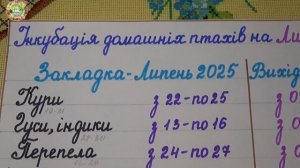 Інкубація домашніх птахів на Ли
Закладка-Липень 2025 Вихід
Кури з 22-по25 з 0
Гуси, індики з 13-по 16 з
Перепела з 24-по 27 з 0